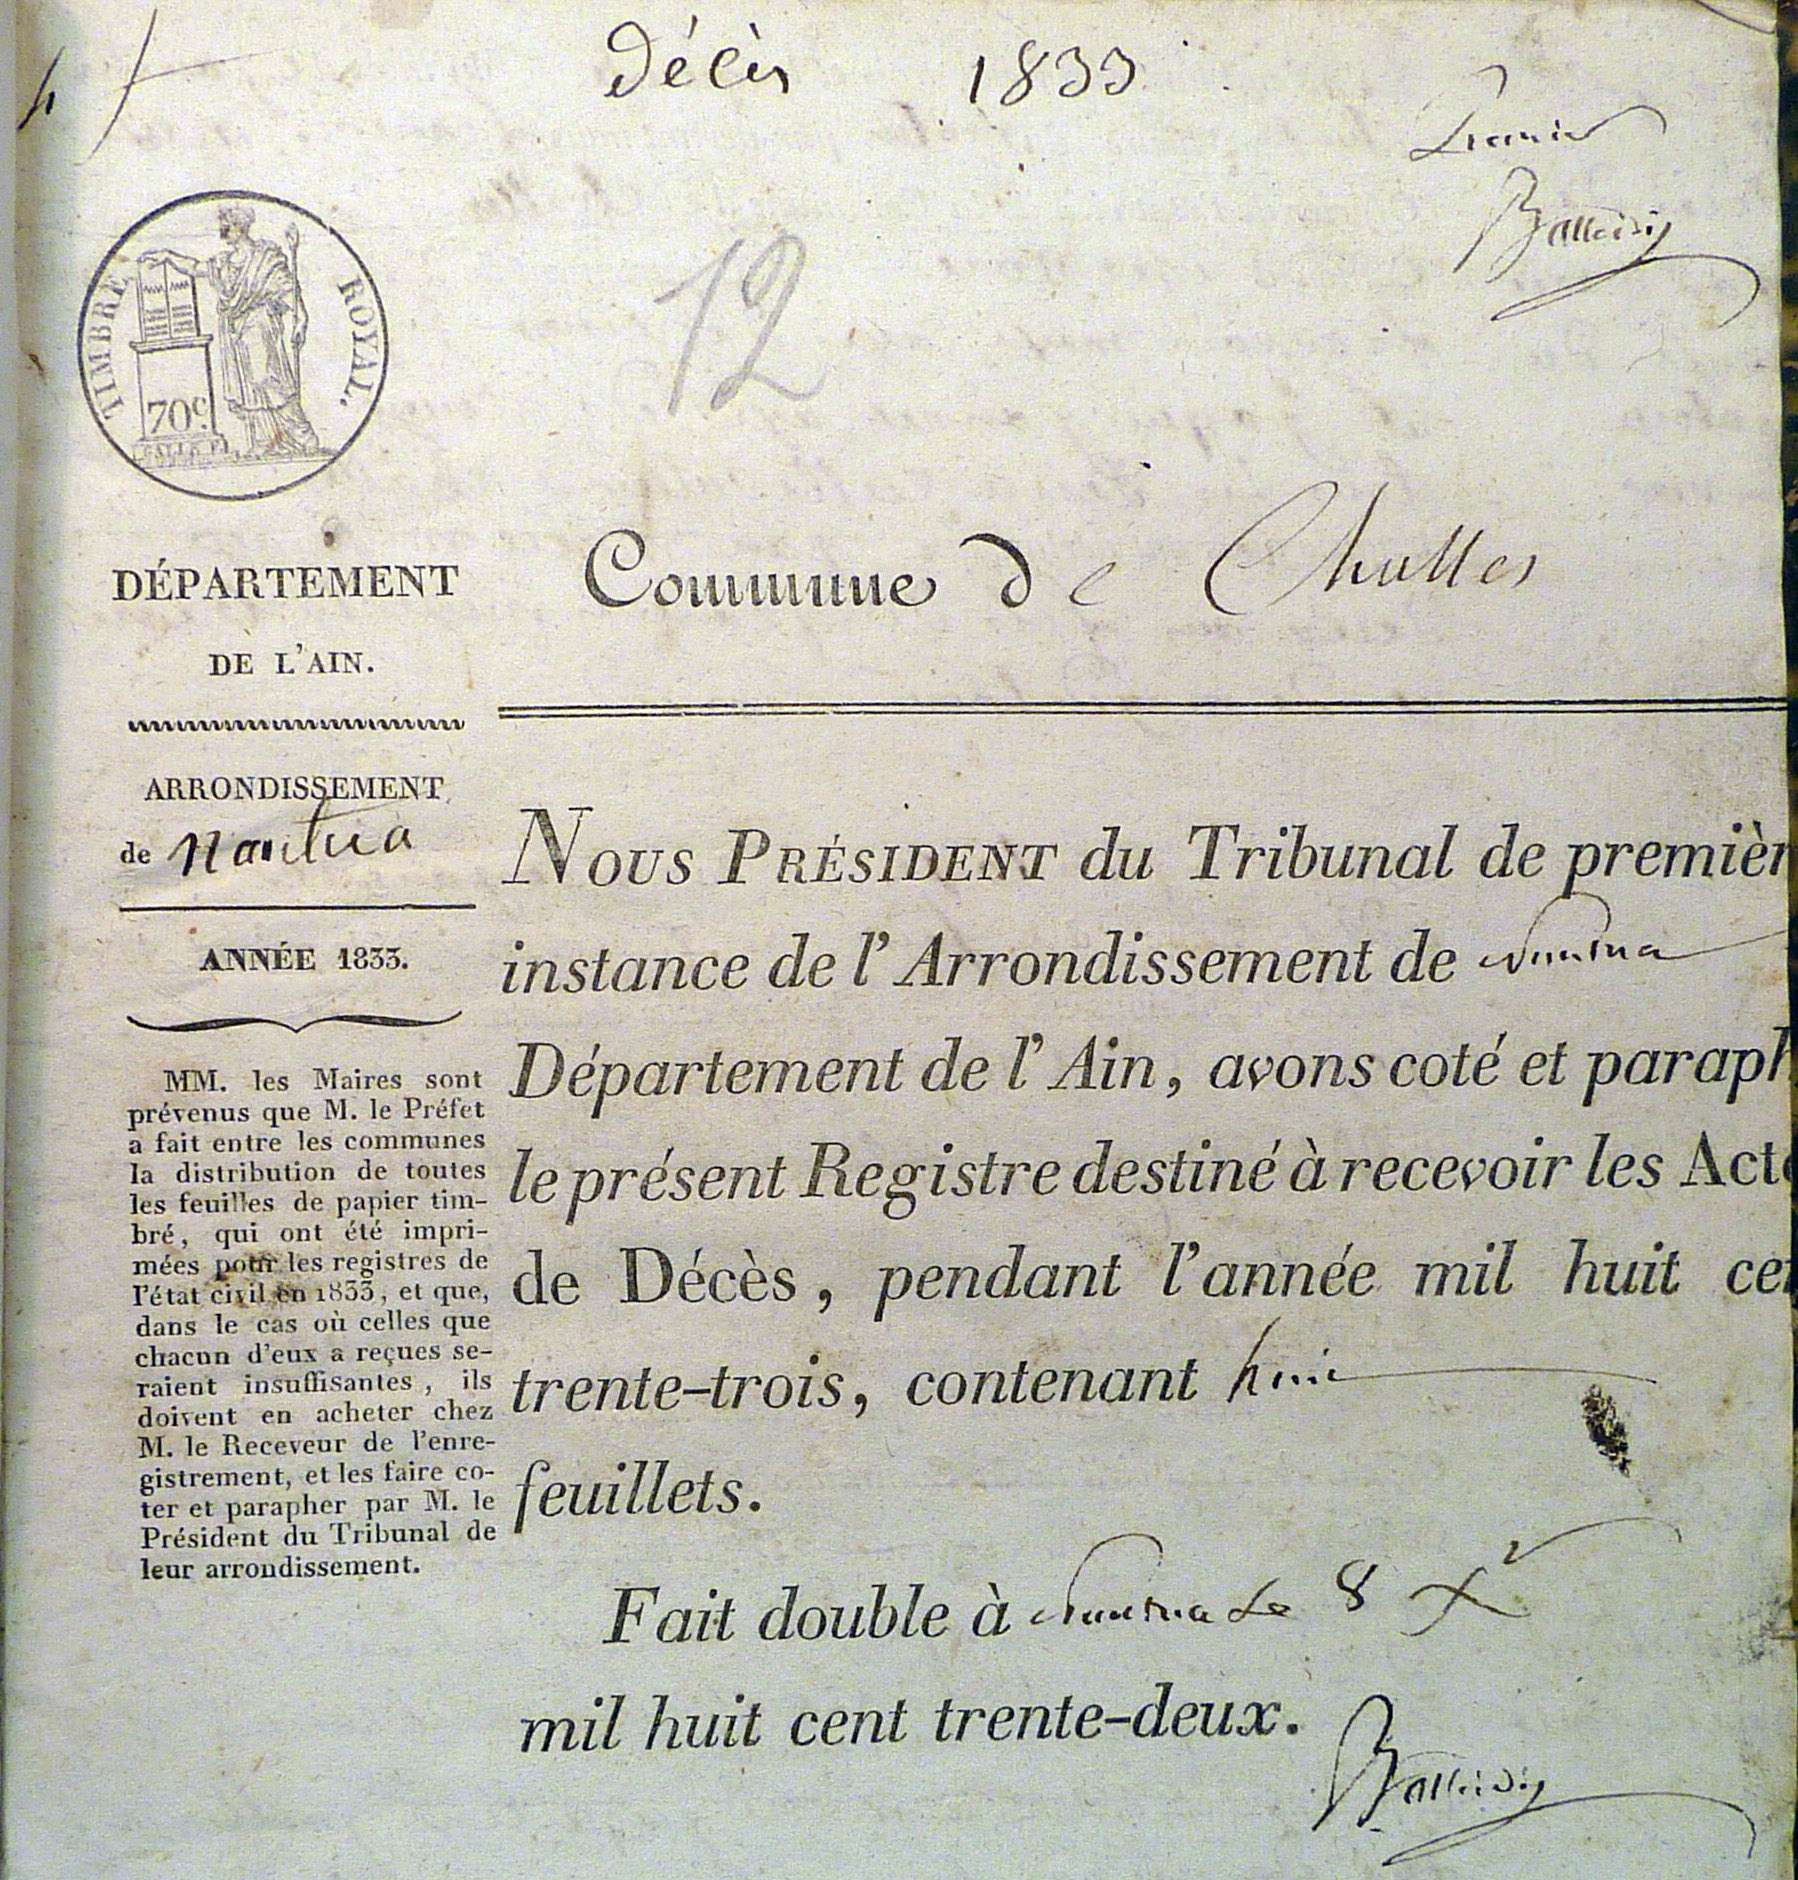 Décès 1833
Premier
12
TIMBRE ROYAL.
70c.
DÉPARTEMENT
DE L'AIN.
ARRONDISSEMENT
de Nantua
ANNÉE 1833.
MM. les Maires sont
prévenus que M. le Préfet
a fait entre les communes
la distribution de toutes
les feuilles de papier tim-
bré, qui ont été impri-
mées pour les registres de
l'état civil en 1833, et que,
dans le cas où celles que
chacun d'eux a reçues se-
raient insuffisantes, ils
doivent en acheter chez
M. le Receveur de l'enre-
gistrement, et les faire co-
ter et parapher par M. le
Président du Tribunal de
leur arrondissement.
Commune de Challes
NOUS PRÉSIDENT du Tribunal de premièr
instance de l'Arrondissement de Nantua
Département de l'Ain, avons coté et paraph
le présent Registre destiné à recevoir les Acte
de Décès, pendant l'année mil huit cen
trente-trois, contenant huit
feuillets.
Fait double à Nantua Le 8 Xe
mil huit cent trente-deux.